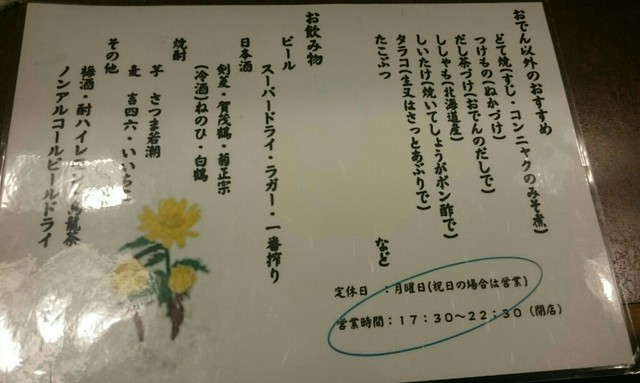 おでん以外のおすすめ
どて焼(すじ・コンニャクのみそ煮)
つけもの(ぬかづけ)
だし茶づけ(おでんのだしで)
ししゃも(北海道産)
しいたけ(焼いてしょうがポン酢で)
タラコ(生又はさっとあぶりで)
たこぶつ
など
お飲み物
ビール
スーパードライ・ラガー・一番搾り
日本酒
剣菱・賀茂鶴・菊正宗
(冷酒)ねのひ・白鶴
焼酎
芋 さつま若潮
麦 吉四六・いいちこ
その他
梅酒・酎ハイレモン・烏龍茶
ノンアルコールビールドライ
定休日 :月曜日(祝日の場合は営業)
営業時間:17:30〜22:30(閉店)